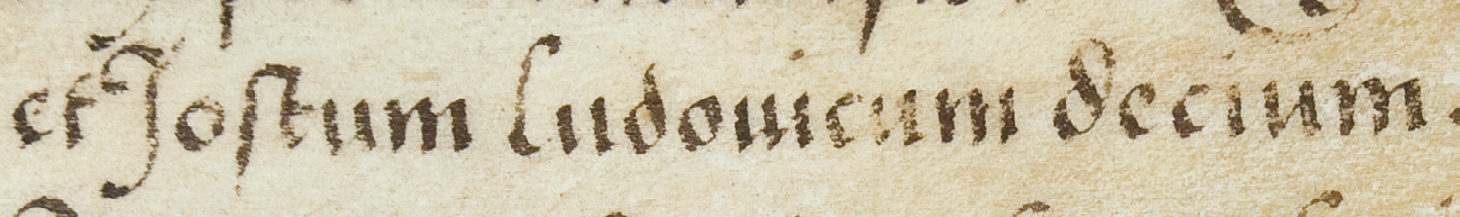 et Jostum ludouicum decium.